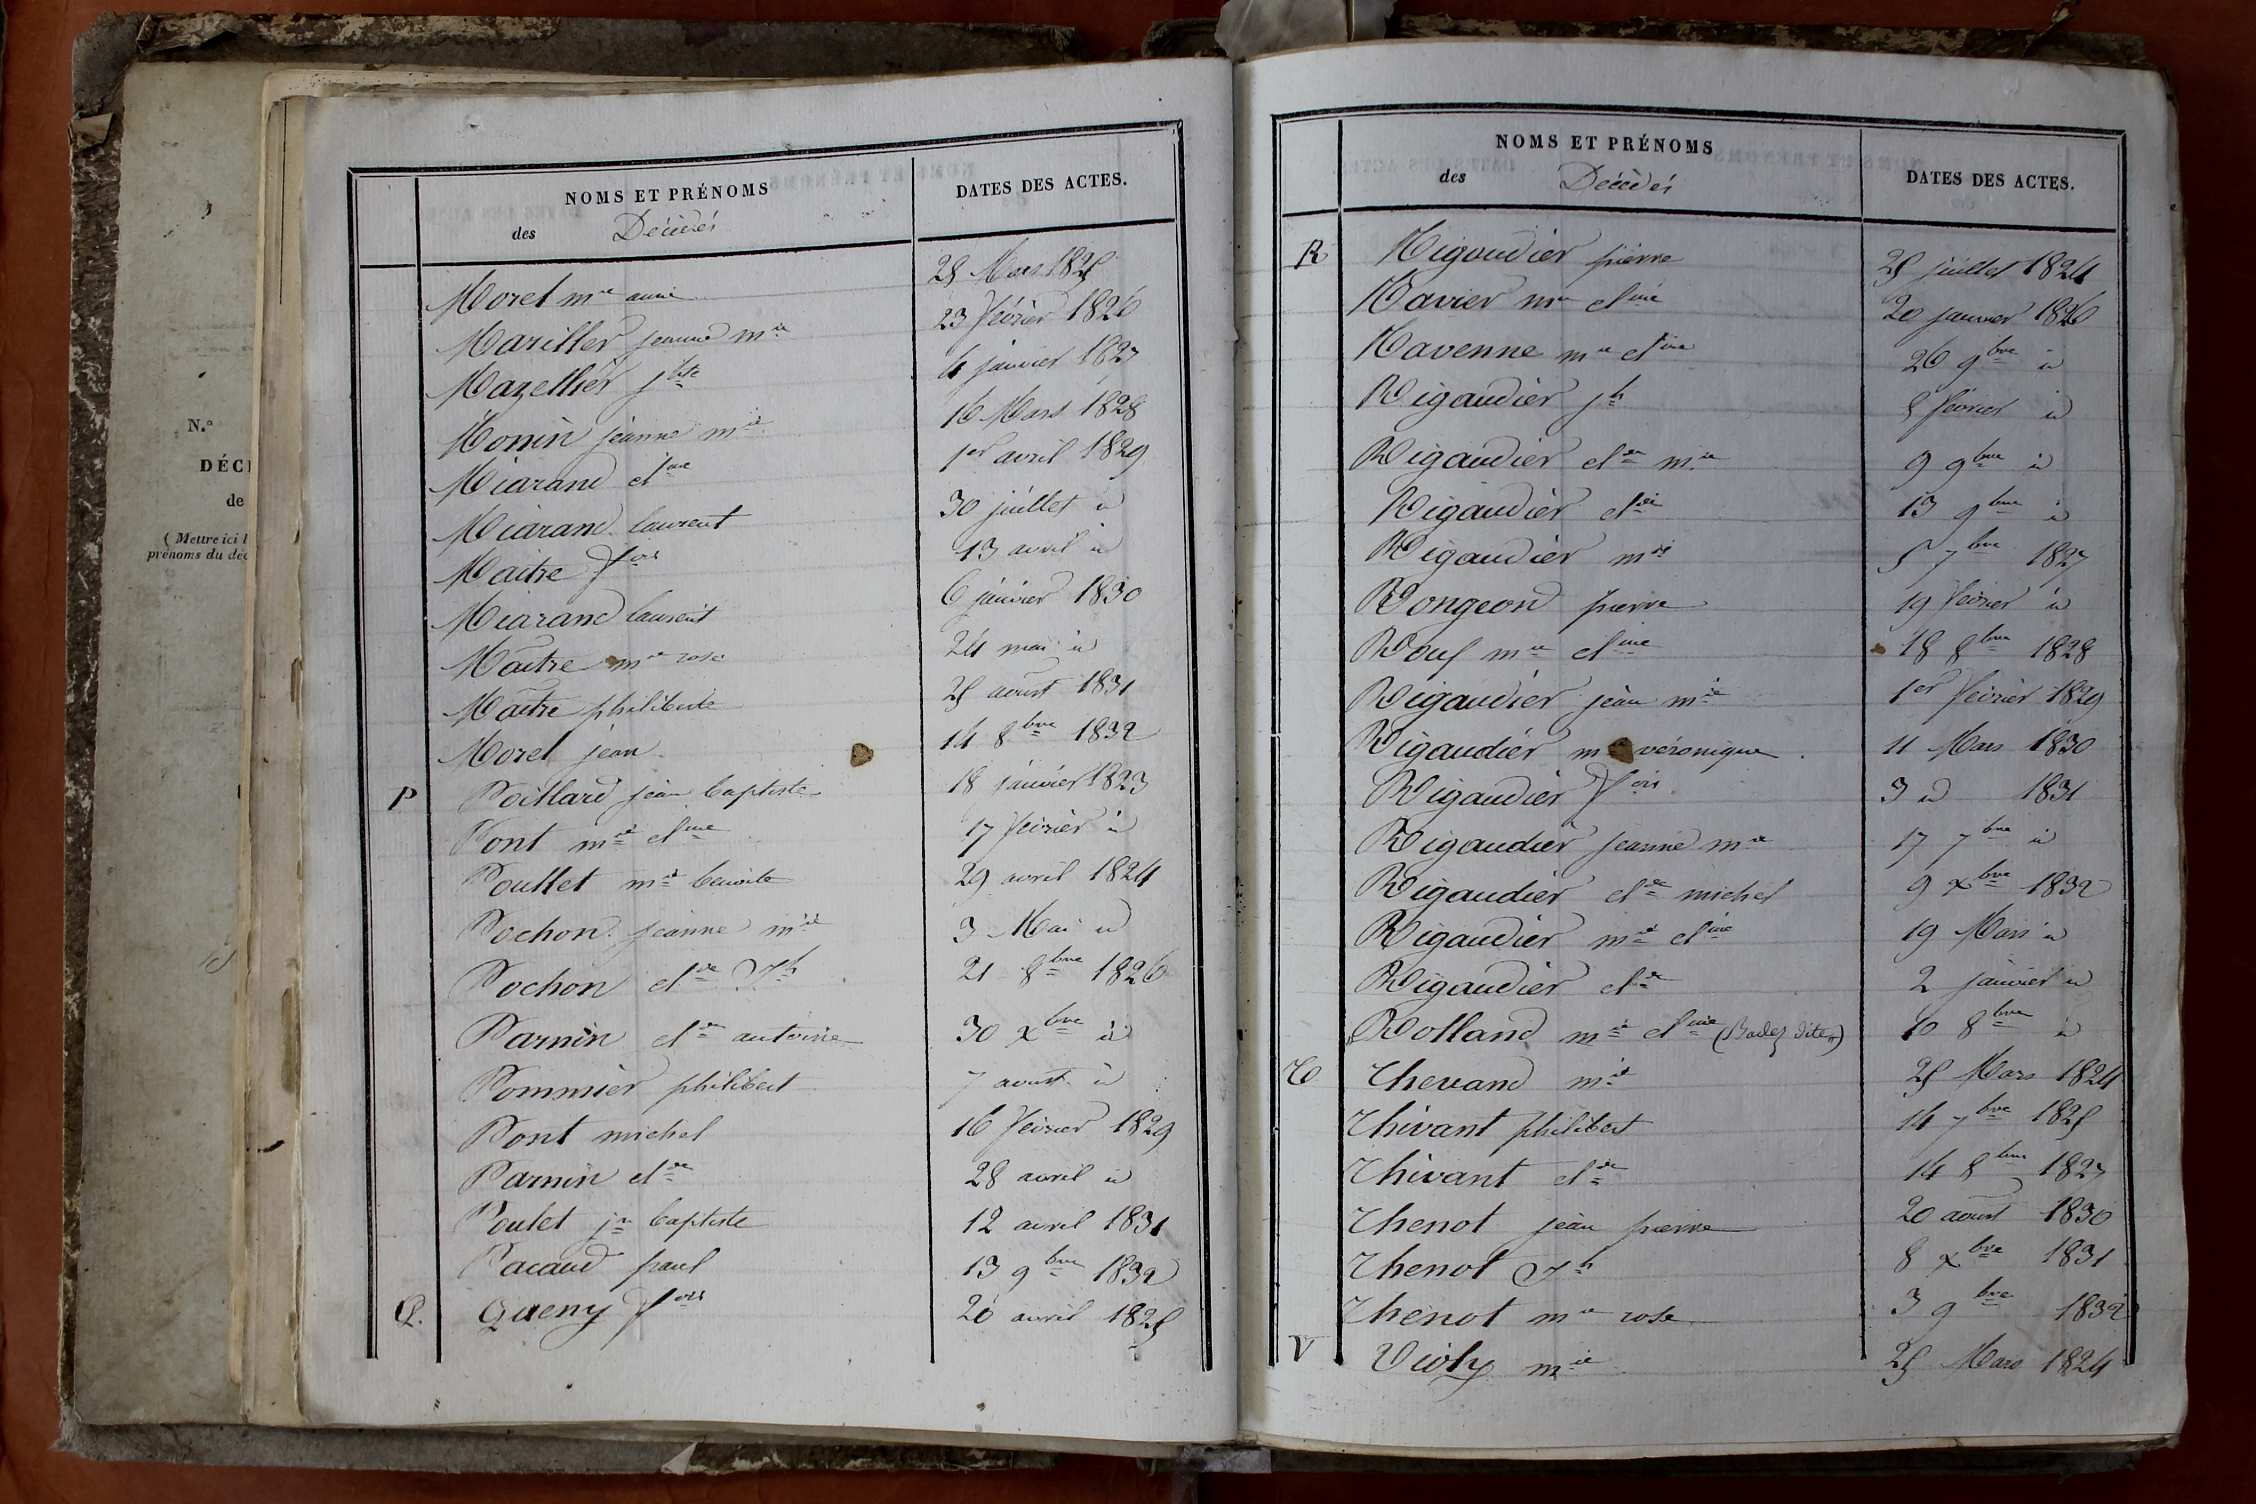 N.º
DÉCÈ
de
( Mettre ici l
prénoms du déc
NOMS ET PRÉNOMS
des Décédés
DATES DES ACTES.
Morel mie anne 25 Mars 1825
Mariller jeanne mie 23 février 1826
Mazellier jbte 4 janvier 1827
Monin jeanne mie 16 Mars 1828
Miarand cline 1er avril 1829
Miarand laurent 30 juillet id
Maitre fois 13 avril id
Miarand laurent 6 janvier 1830
Maitre mie rose 24 mai id
Maitre philiberte 25 aoust 1831
Morel jean 14 8bre 1832
P Poillard jean baptiste 18 janvier 1823
Pont mie cline 17 février id
Poullet mie benoite 29 avril 1824
Pochon jeanne mie 3 Mai id
Pochon clde Jh 21 8bre 1826
Parnin clde antoine 30 xbre id
Pommier philibert 7 aoust id
Pont michel 16 février 1829
Parnin clde 28 avril id
Poulet jn baptiste 12 avril 1831
Pacaud paul 13 9bre 1832
Q. Queny fois 20 avril 1825
NOMS ET PRÉNOMS
des Décédés
DATES DES ACTES.
R Rigaudier pierre 25 juillet 1824
Ravier mie cline 20 janvier 1826
Ravenne mie cline 26 9bre id
Rigaudier jh 8 février id
Rigaudier clde mie 9 9bre id
Rigaudier clde 13 9bre id
Rigaudier mie 5 7bre 1827
Rongeon pierre 19 février id
Rouf mie cline 18 8bre 1828
Rigaudier jean mie 1er février 1829
Rigaudier mie véronique 11 Mars 1830
Rigaudier fois 3 id 1831
Rigaudier jeanne mie 17 7bre id
Rigaudier clde michel 9 xbre 1832
Rigaudier mie cline 19 Mars id
Rigaudier clde 2 janvier id
Rolland mie cline ( dite) 10 8bre id
T Thevand mie 25 Mars 1824
Thivant philibert 14 7bre 1825
Thivant clde 14 8bre 1827
Thenot jean pierre 20 aoust 1830
Thenot Jh 8 xbre 1831
Thenot mie rose 3 9bre 1832
V Violy mie 25 Mars 1824